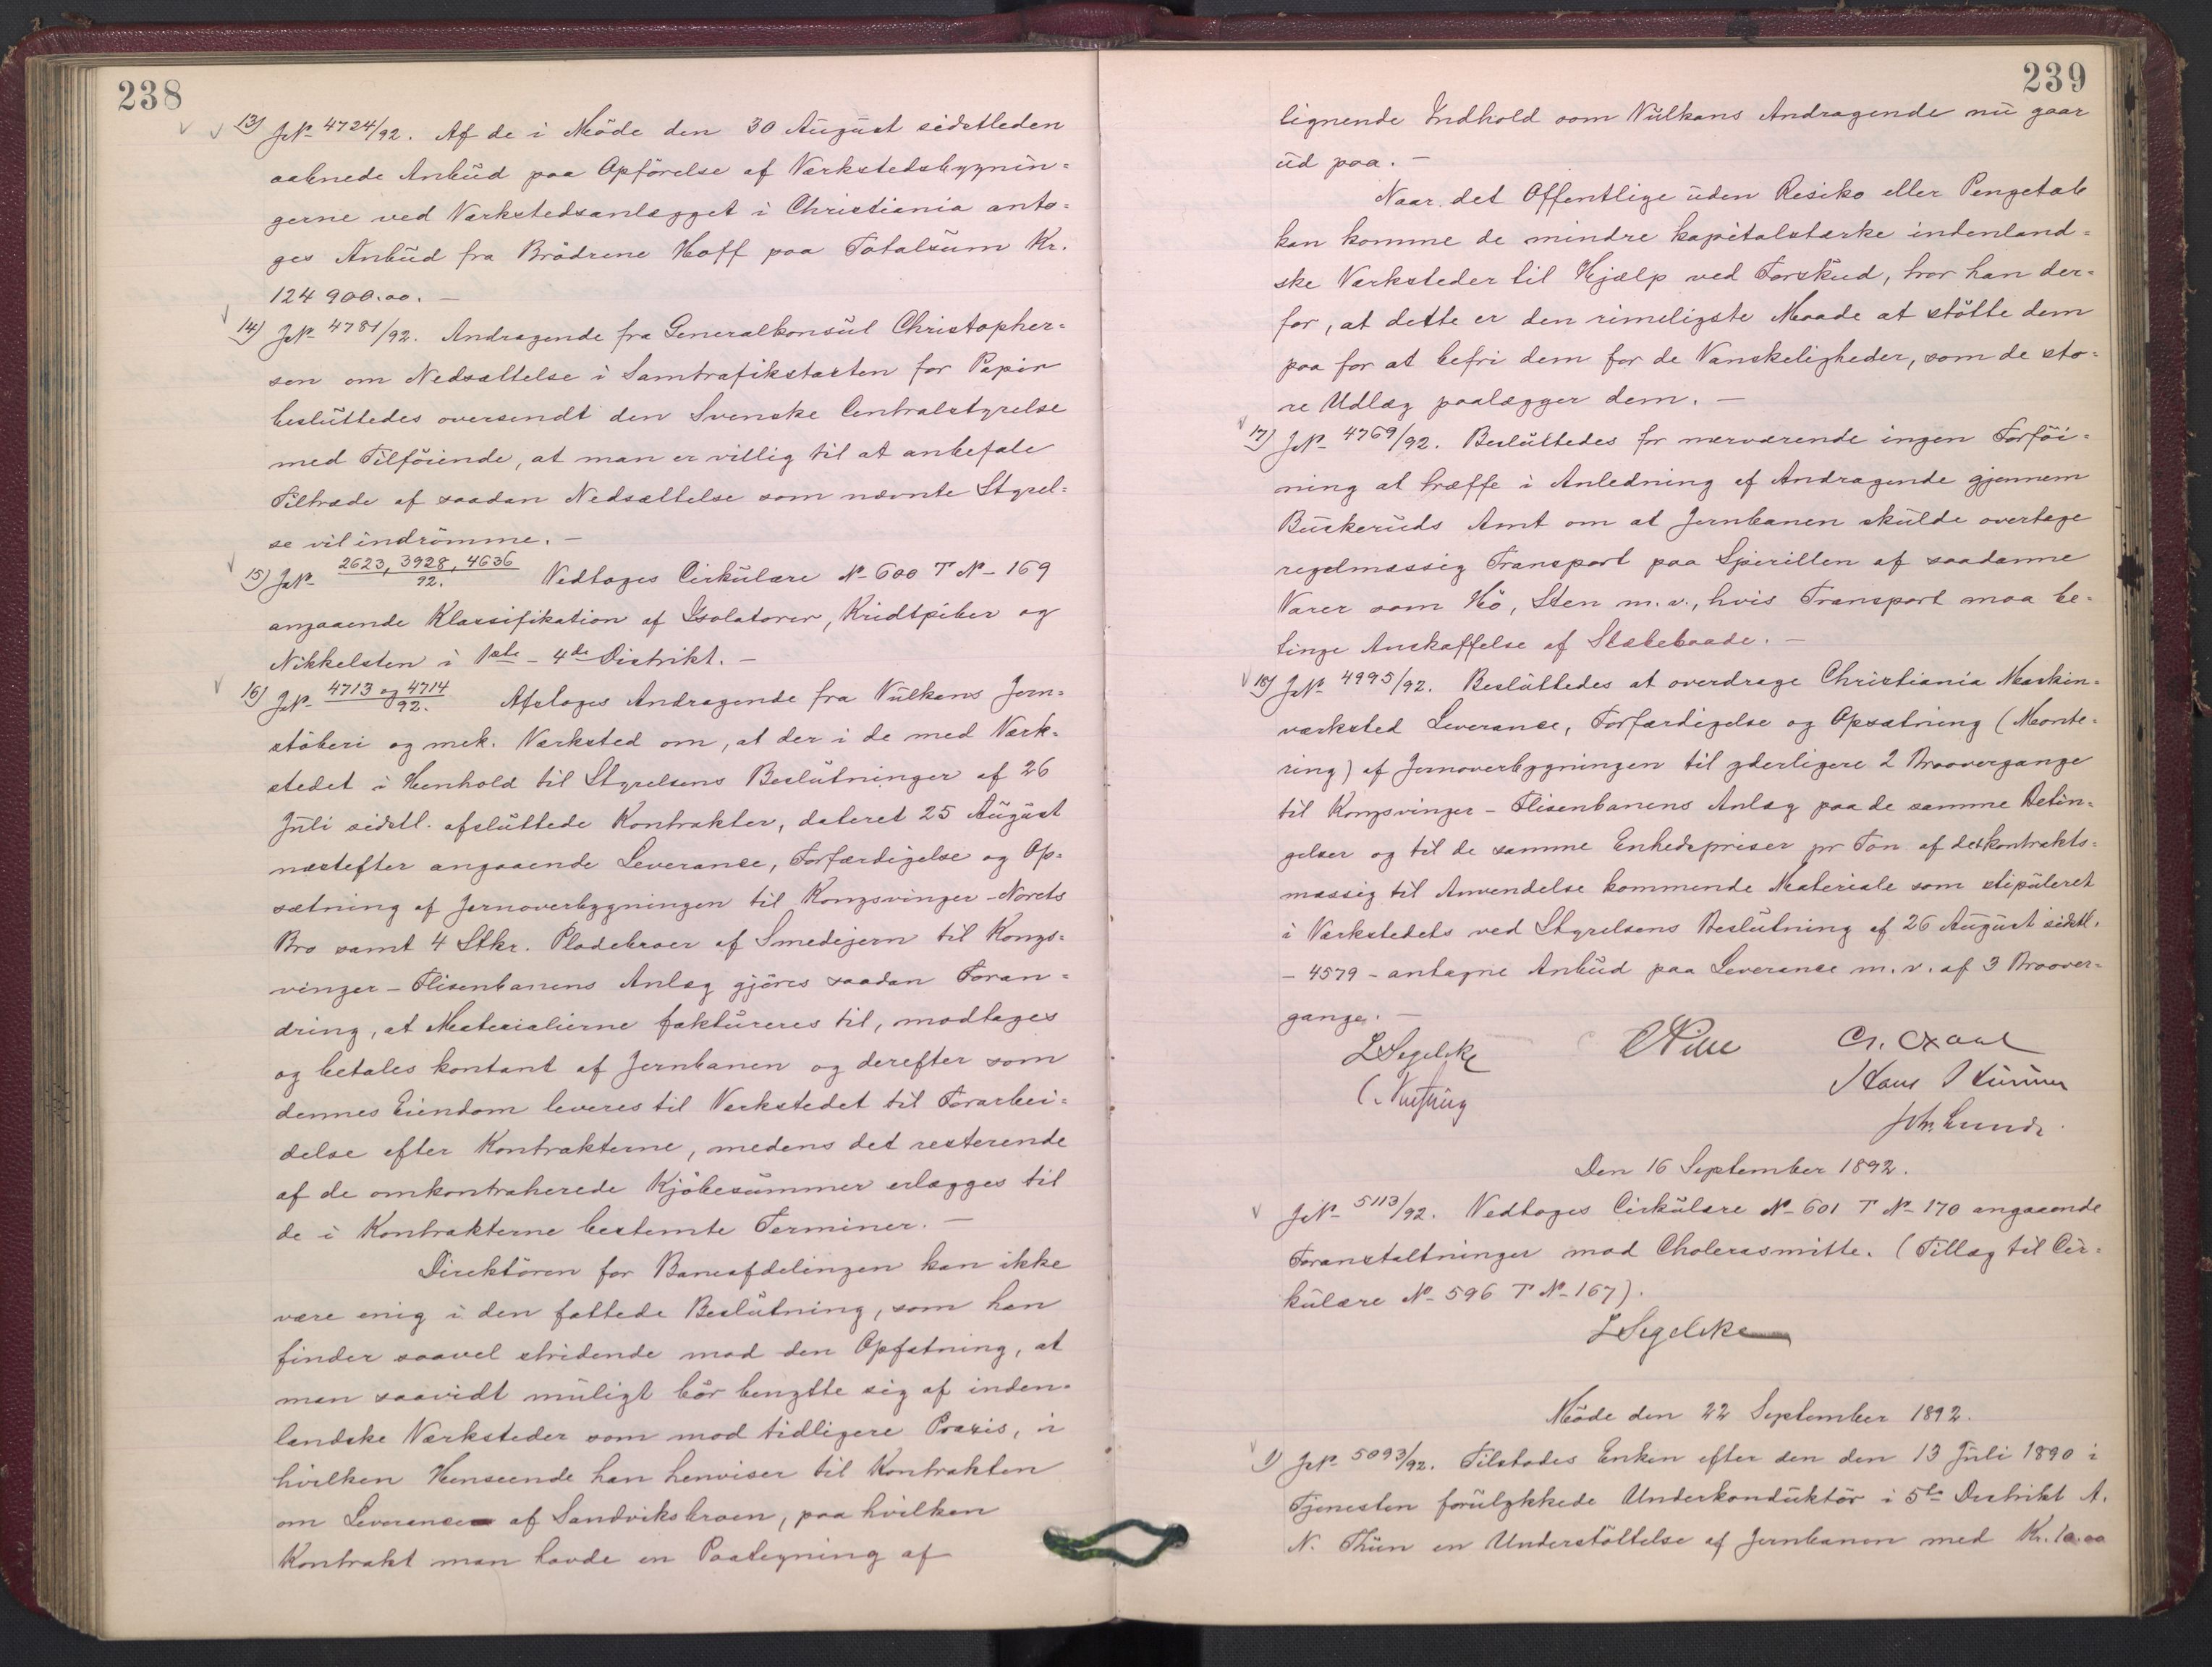 238
13) JN 4724/92. Af de i Möde den 30 August sidstleden
aabnede Anbud paa Opförelse af Værkstedsbygnin=
gerne ved Værkstedsanlægget i Christiania anto=
ges Anbud fra Brödrene Hoff paa Totalsum Kr.
124 900.00. —
14) JN 4781/92. Andragende fra Generalkonsul Christopher=
sen om Nedsættelse i Samtrafikstaxten for Papir
besluttedes oversendt den Svenske Centralstyrelse
med Tilföiende, at man er villig til at anbefale
Tiltræde af saadan Nedsættelse som nævnte Styrel=
se vil indrömme. —
15) JN 2623, 3928, 4636/92. Vedtoges Cirkulære N 600 T N 169
angaaende Klassifikation af Isolatorer, Kridtpiber og
Nikkelsten i 1ste – 4de Distrikt. —
16) JN 4713 og 4714/92. Afsloges Andragende fra Vulkans Jern=
stöberi og mek. Værksted om, at der i de med Værk=
stedet i Henhold til Styrelsens Beslutninger af 26
Juli sidstl. afsluttede Kontrakter, dateret 25 August
næstefter angaaende Leverance, Forfærdigelse og Op=
sætning af Jernoverbygningen til Kongsvinger-Norets
Bro samt 4 Stkr. Pladebroer af Smedejern til Kongs=
vinger – Flisenbanens Anlæg gjöres saadan Foran=
dring, at Materialierne faktureres til, modtages
og betales kontant af Jernbanen og derefter som
dennes Eiendom leveres til Værkstedet til Forarbei=
delse efter Kontrakterne, medens det resterende
af de omkontraherede Kjöbesummer erlægges til
de i Kontrakterne bestemte Terminer. —
Direktören for Baneafdelingen kan ikke
være enig i den fattede Beslutning, som han
finder saavel stridende mod den Opfatning, at
man saavidt muligt bör benytte sig af inden=
landske Værksteder som mod tidligere Praxis, i
hvilken Henseende han henviser til Kontrakten
om Leverance af Sandviksbroen, paa hvilken
Kontrakt man havde en Paategning af
239
lignende Indhold som Vulkans Andragende nu gaar
ud paa. —
Naar det Offentlige uden Risiko eller Pengetab
kan komme de mindre kapitalstærke indenland=
ske Værksteder til Hjælp ved Forskud, tror han der=
for, at dette er den rimeligste Maade at stötte dem
paa for at befri dem for de Vanskeligheder, som de sto=
re Udlæg paalægger dem. —
17) JN 4769/92. Besluttedes for nærværende ingen Forföi=
ning at træffe i Anledning af Andragende gjennem
Buskeruds Amt om at Jernbanen skulde overtage
regelmæssig Transport paa Spirillen af saadanne
Varer som Hö, Sten m.v., hvis Transport maa be=
tinge Anskaffelse af Slæbebaade. —
18) JN 4995/92. Besluttedes at overdrage Christiania Maskin=
værksted Leverance, Forfærdigelse og Opsætning (Monte=
ring) af Jernoverbygningen til yderligere 2 Broovergange
til Kongsvinger – Flisenbanens Anlæg paa de samme Betin=
gelser og til de samme Enhedspriser pr Ton af det kontrakts=
mæssig til Anvendelse kommende Materiale som stipuleret
i Værkstedets ved Styrelsens Beslutning af 26 August sidstl.
– 4579 – antagne Anbud paa Leverance m.v. af 3 Broover=
gange. —
L Segelcke CPihl
Joh. Lunde.
Den 16 September 1892.
JN 5113/92. Vedtoges Cirkulære N 601 T N 170 angaaende
Foranstaltninger mod Cholerasmitte. (Tillæg til Cir=
kulære N 596 T N 167).
L Segelcke
Möde den 22 September 1892.
1) JN 5093/92. Tilstodes Enken efter den den 13 Juli 1890 i
Tjenesten forulykkede Underkonduktör i 5te Distrikt A.
N. Thun en Understöttelse af Jernbanen med Kr. 10.00